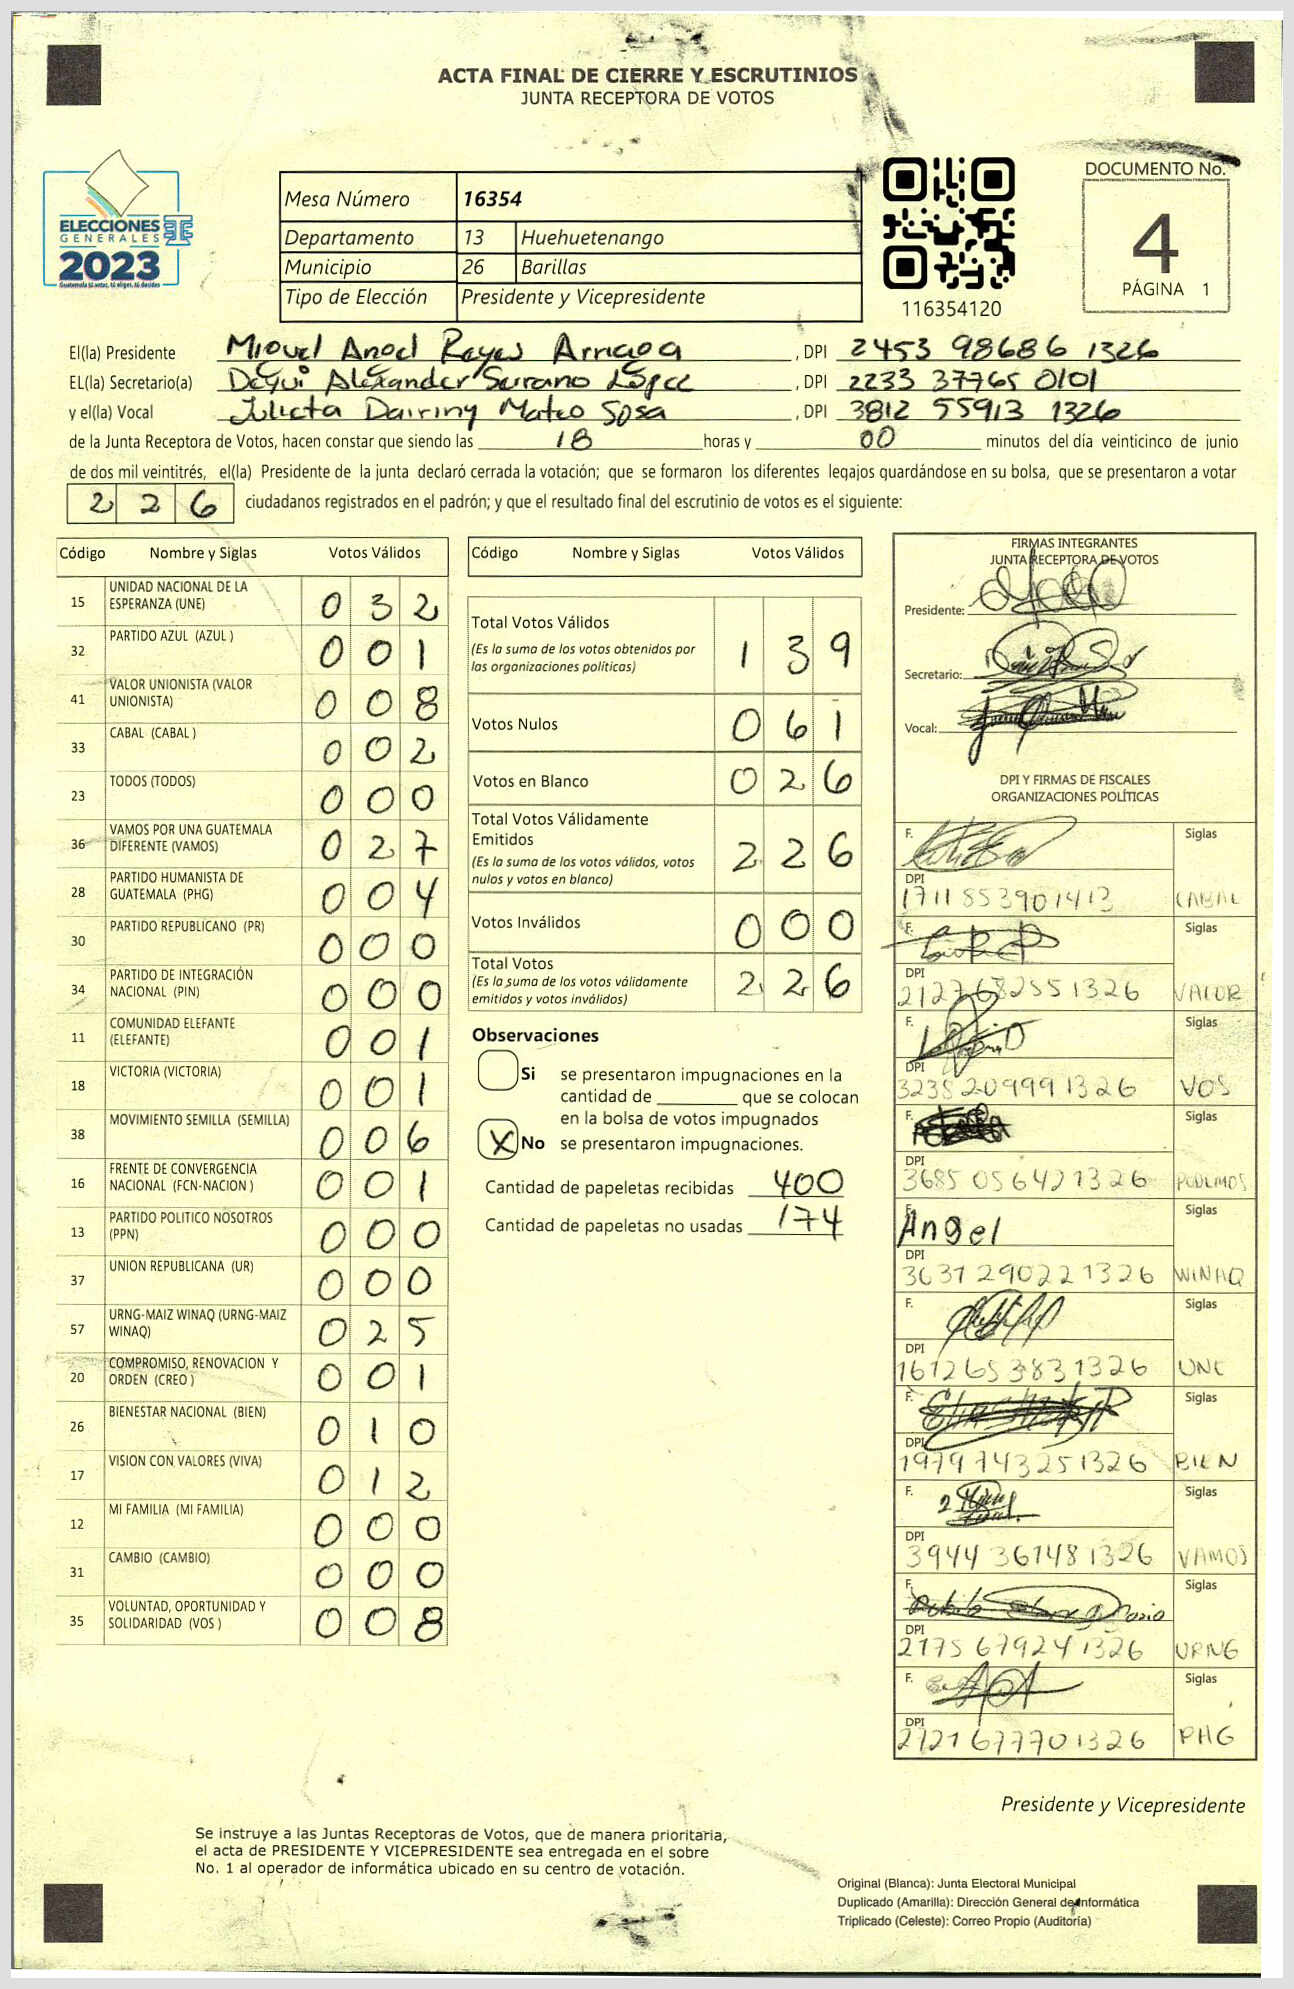 ACTA FINAL DE CIERRE Y ESCRUTINIOS
JUNTA RECEPTORA DE VOTOS
ELECCIONES
GENERALES
2023
Guatemala tú votas, tú eliges, tú decides
Mesa Número 16354
Departamento 13 Huehuetenango
Municipio 26 Barillas
Tipo de Elección Presidente y Vicepresidente
116354120
DOCUMENTO No.
4
PÁGINA 1
El(la) Presidente Miguel Angel Reyes Arriaga , DPI 2453 98686 1326
EL(la) Secretario(a) Alexander Serrano López , DPI 2233 37765 0101
y el(la) Vocal Julieta Dairiny Mateo Sosa , DPI 3812 55913 1326
de la Junta Receptora de Votos, hacen constar que siendo las 18 horas y 00 minutos del día veinticinco de junio
de dos mil veintitrés, el(la) Presidente de la junta declaró cerrada la votación; que se formaron los diferentes legajos quardándose en su bolsa, que se presentaron a votar
226 ciudadanos registrados en el padrón; y que el resultado final del escrutinio de votos es el siguiente:
Código Nombre y Siglas Votos Válidos
15 UNIDAD NACIONAL DE LA ESPERANZA (UNE) 032
32 PARTIDO AZUL (AZUL ) 001
41 VALOR UNIONISTA (VALOR UNIONISTA) 008
33 CABAL (CABAL ) 002
23 TODOS (TODOS) 000
36 VAMOS POR UNA GUATEMALA DIFERENTE (VAMOS) 027
28 PARTIDO HUMANISTA DE GUATEMALA (PHG) 004
30 PARTIDO REPUBLICANO (PR) 000
34 PARTIDO DE INTEGRACIÓN NACIONAL (PIN) 000
11 COMUNIDAD ELEFANTE (ELEFANTE) 001
18 VICTORIA (VICTORIA) 001
38 MOVIMIENTO SEMILLA (SEMILLA) 006
16 FRENTE DE CONVERGENCIA NACIONAL (FCN-NACION ) 001
13 PARTIDO POLITICO NOSOTROS (PPN) 000
37 UNION REPUBLICANA (UR) 000
57 URNG-MAIZ WINAQ (URNG-MAIZ WINAQ) 025
20 COMPROMISO, RENOVACION Y ORDEN (CREO ) 001
26 BIENESTAR NACIONAL (BIEN) 010
17 VISION CON VALORES (VIVA) 012
12 MI FAMILIA (MI FAMILIA) 000
31 CAMBIO (CAMBIO) 000
35 VOLUNTAD, OPORTUNIDAD Y SOLIDARIDAD (VOS ) 008
Código Nombre y Siglas Votos Válidos
Total Votos Válidos 139
(Es la suma de los votos obtenidos por
las organizaciones políticas)
Votos Nulos 061
Votos en Blanco 026
Total Votos Válidamente
Emitidos 226
(Es la suma de los votos válidos, votos
nulos y votos en blanco)
Votos Inválidos 000
Total Votos 226
(Es la suma de los votos válidamente
emitidos y votos inválidos)
Observaciones
Si se presentaron impugnaciones en la
cantidad de ________ que se colocan
en la bolsa de votos impugnados
X No se presentaron impugnaciones.
Cantidad de papeletas recibidas 400
Cantidad de papeletas no usadas 174
FIRMAS INTEGRANTES
JUNTA RECEPTORA DE VOTOS
Presidente:
Secretario:
Vocal:
DPI Y FIRMAS DE FISCALES
ORGANIZACIONES POLÍTICAS
F. Siglas
DPI
1711853901413 CABAL
F. Siglas
DPI
2127682551326 VALOR
F. Siglas
DPI
3235209991326 VOS
F. Siglas
DPI
3685056421326 PODEMOS
F. Angel Siglas
DPI
3631290221326 WINAQ
F. Siglas
DPI
1612653831326 UNE
F. Siglas
DPI
1979743251326 BIEN
F. Siglas
DPI
3944361481326 VAMOS
F. Siglas
DPI
2175679241326 URNG
F. Siglas
DPI
2121677701326 PHG
Presidente y Vicepresidente
Se instruye a las Juntas Receptoras de Votos, que de manera prioritaria,
el acta de PRESIDENTE Y VICEPRESIDENTE sea entregada en el sobre
No. 1 al operador de informática ubicado en su centro de votación.
Original (Blanca): Junta Electoral Municipal
Duplicado (Amarilla): Dirección General de Informática
Triplicado (Celeste): Correo Propio (Auditoría)